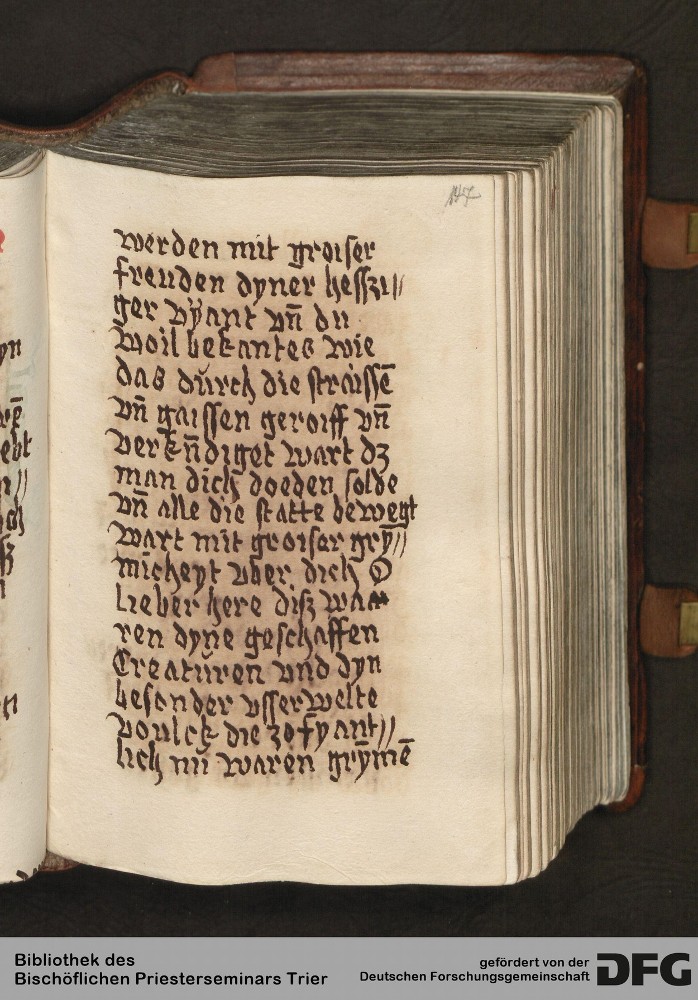 147
werden mit groiser
freuden dyner hesszi//
ger vyant vn̄ du
woil bekantes wie
das durch die straissē
vn̄ gaissen geroiff vn̄
verkn̄diget wart dz
man dich doeden solde
vn̄ alle die statte bewegt
wart mit groiser gry̅//
micheyt vber dich O
Lieber here disz waa
ren dyne geschaffen
Creaturen vnd dyn
besonder vsserwelte
voulck die zo fyant//
lich nu waren gry̅mē
Bibliothek des
Bischöflichen Priesterseminars Trier
gefördert von der
Deutschen Forschungsgemeinschaft
DFG